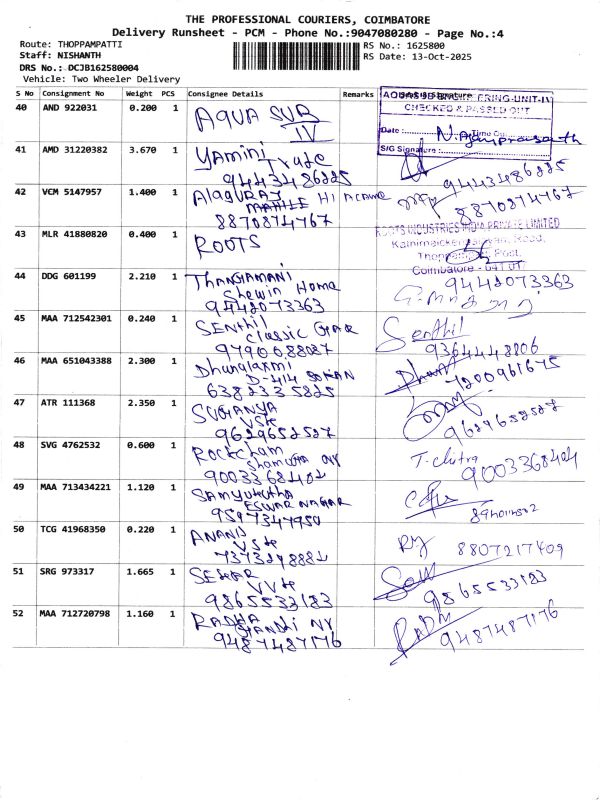 THE PROFESSIONAL COURIERS, COIMBATORE
Delivery Runsheet - PCM - Phone No.:9047080280 - Page No.:4
Route: THOPPAMPATTI
Staff: NISHANTH
DRS No.: DCJB162580004
Vehicle: Two Wheeler Delivery
RS No.: 1625800
RS Date: 13-Oct-2025
S No Consignment No Weight PCS Consignee Details Remarks
40 AND 922031 0.200 1 AQUA SUB
IV
CHECKED & PASSED OUT
Date : Time Out
S/G Signature :
41 AMD 31220382 3.670 1 Yamini
9443486225
9443486225
42 VCM 5147957 1.400 1 Alaguraj
8870874767
8870874767
43 MLR 41880820 0.400 1 ROOTS
ROOTS INDUSTRIES INDIA PRIVATE LIMITED
Road,
Post,
Coimbatore - 641 017
44 DDG 601199 2.210 1 Thangamani
Shewin Home
9442073363
9442073363
45 MAA 712542301 0.240 1 Senthil
Classic Gar
9790088087
Senthil
9364448806
46 MAA 651043388 2.300 1 Dhanalaxmi
D-414
6382335825
7200961675
47 ATR 111368 2.350 1 SUGANYA
VSK
9629652527
9629652527
48 SVG 4762532 0.600 1 Rockcham
9003368404
T-chitra
9003368404
49 MAA 713434221 1.120 1 Samyuktha
ESWAR NAGAR
9597347950
50 TCG 41968350 0.220 1 ANAND
7373298881
8807217409
51 SRG 973317 1.665 1 SEKAR
9865533183
9865533183
52 MAA 712720798 1.160 1 RADHA
Gandhi NY
9487487176
RADH
9487487176